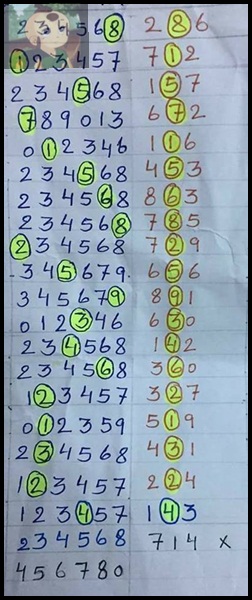 2 5 6 8 2 8 6
1 2 3 4 5 7 7 1 2
2 3 4 5 6 8 1 5 7
7 8 9 0 1 3 6 7 2
0 1 2 3 4 6 1 1 6
2 3 4 5 6 8 4 5 3
2 3 4 5 6 8 8 6 3
2 3 4 5 6 8 7 8 5
2 3 4 5 6 8 7 2 9
3 4 5 6 7 9 6 5 6
3 4 5 6 7 9 8 9 1
0 1 2 3 4 6 6 3 0
2 3 4 5 6 8 1 4 2
2 3 4 5 6 8 3 6 0
1 2 3 4 5 7 3 2 7
0 1 2 3 5 9 5 1 9
2 3 4 5 6 8 4 3 1
1 2 3 4 5 7 2 2 4
1 2 3 4 5 7 1 4 3
2 3 4 5 6 8 7 1 4 x
4 5 6 7 8 0